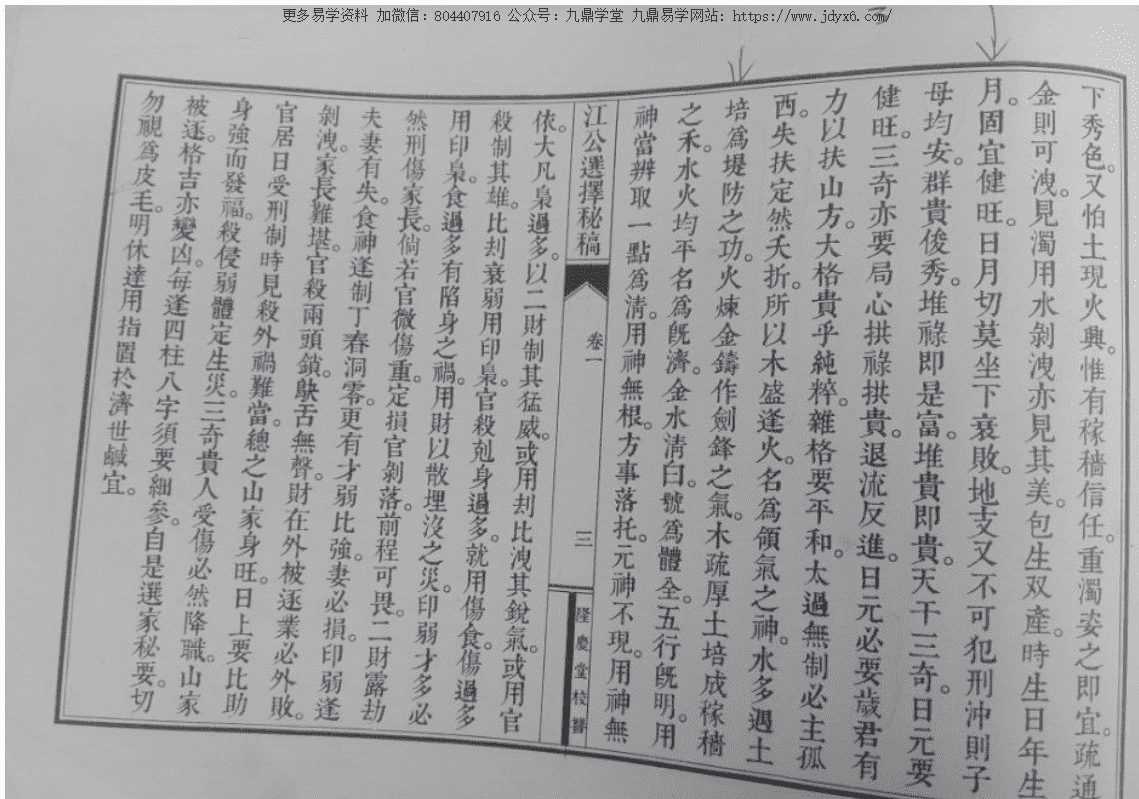 更多易学资料 加微信：804407916 公众号：九鼎学堂 九鼎易学网站：https://www.jdyx6.com/
下秀色。又怕土現火興。惟有稼穡信任。重濁姿之即宜。疏通
金則可洩。見濁用水剝洩亦見其美。包生双產。時生日年生
月。固宜健旺。日月切莫坐下衰敗。地支又不可犯刑沖則子
母均安。群貴俊秀。堆祿即是富。堆貴即貴。天干三奇。日元要
健旺。三奇亦要局心拱祿拱貴。退流反進。日元必要歲君有
力以扶山方。大格貴乎純粹。雜格要平和。太過無制必主孤
西。失扶定然夭折。所以木盛逢火。名為領氣之神。水多遇土
培為堤防之功。火煉金鑄作劍鋒之氣。木疏厚土培成稼穡
之禾。水火均平名為旣濟。金水清曰。號為體全。五行旣明。用
神當辨取一點為清。用神無根。方事落托。元神不現。用神無
江公選擇秘稿
卷一
三
隆慶堂校
依。大凡梟過多。以二財制其猛威。或用刦比洩其銳氣。或用官
殺制其雄。比刦衰弱用印梟。官殺剋身過多。就用傷食。傷過多
用印梟。食過多有陷身之禍。用財以散埋沒之災。印弱才多必
然刑傷家長。倘若官微傷重。定損官剝落。前程可畏。二財露劫
夫妻有失。食神逢制丁春洞零。更有才弱比強。妻必損。印弱逢
剝洩。家長難堪。官殺兩頭鎖。舌無聲。財在外被逐業必外敗。
官居日受刑制時見殺外禍難當。總之山家身旺。日上要比助
身強而發福。殺侵弱體定生災。三奇貴人受傷必然降職。山家
被逐。格吉亦變凶。每逢四柱八字須要細參。自是選家秘要。切
勿視為皮毛。明休達用指置於濟世鹹宜。